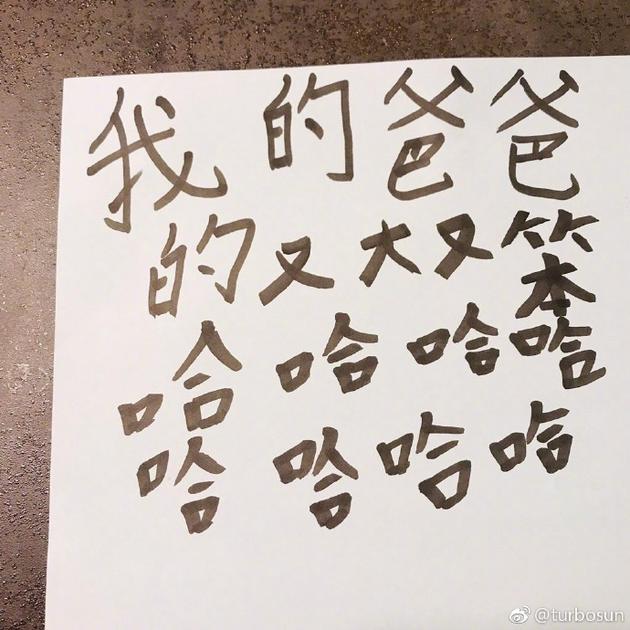 我的爸爸
的又大又笨
哈哈哈哈
哈哈哈哈
@turbosun